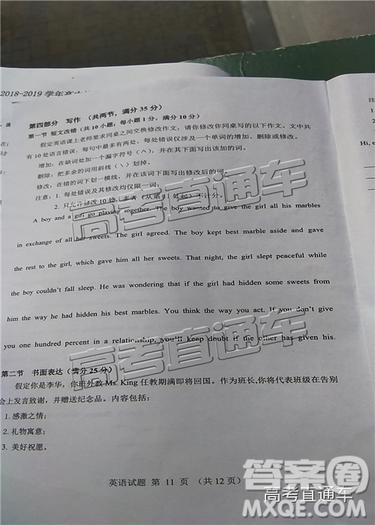 2018-2019 学年高
第四部分 写作 (共两节，满分 35 分)
第一节 短文改错 (共 10 小题；每小题 1 分，满分 10 分)
假定英语课上老师要求同桌之间交换修改作文，请你修改你同桌写的以下作文。文中共
有 10 处语言错误，每句中最多有两处。每处错误仅涉及一个单词的增加、删除或修改。
增加：在缺词处加一个漏字符号 (∧)，并在其下面写出该加的词。
删除：把多余的词用斜线 (\) 划掉。
修改：在错的词下划一横线，并在该词下面写出修改后的词。
注意：1. 每处错误及其修改均仅限一词。
2. 只允许修改 10 处，多者 (从第 11 处起) 不计分。
A boy and a girl go playing together. The boy wanted to give the girl all his marbles
in exchange of all her sweets. The girl agreed. The boy kept best marble aside and gave
the rest to the girl, which gave him all her sweets. That night, the girl slept peaceful while
the boy couldn't fall sleep. He was wondering if the girl had hidden some sweets from
him the way he had hidden his best marbles. You think the way you act. If you don't give
you one hundred percent in a relationship, you'll keep doubt if the other has given his.
第二节 书面表达 (满分 25 分)
假定你是李华，你班外教 Ms. King 任教期满即将回国。作为班长，你将代表班级在告别
会上发言致谢，并赠送纪念品。内容包括：
1. 感激之情；
2. 礼物寓意；
3. 美好祝愿。
英语试题 第 11 页 (共 12 页)
高考直通车
高考直通车
答案圈
高考直通车